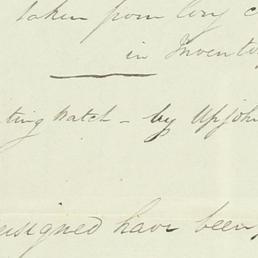 taken from
in Invento
ting Watch - by Upjoh
ersigned have been